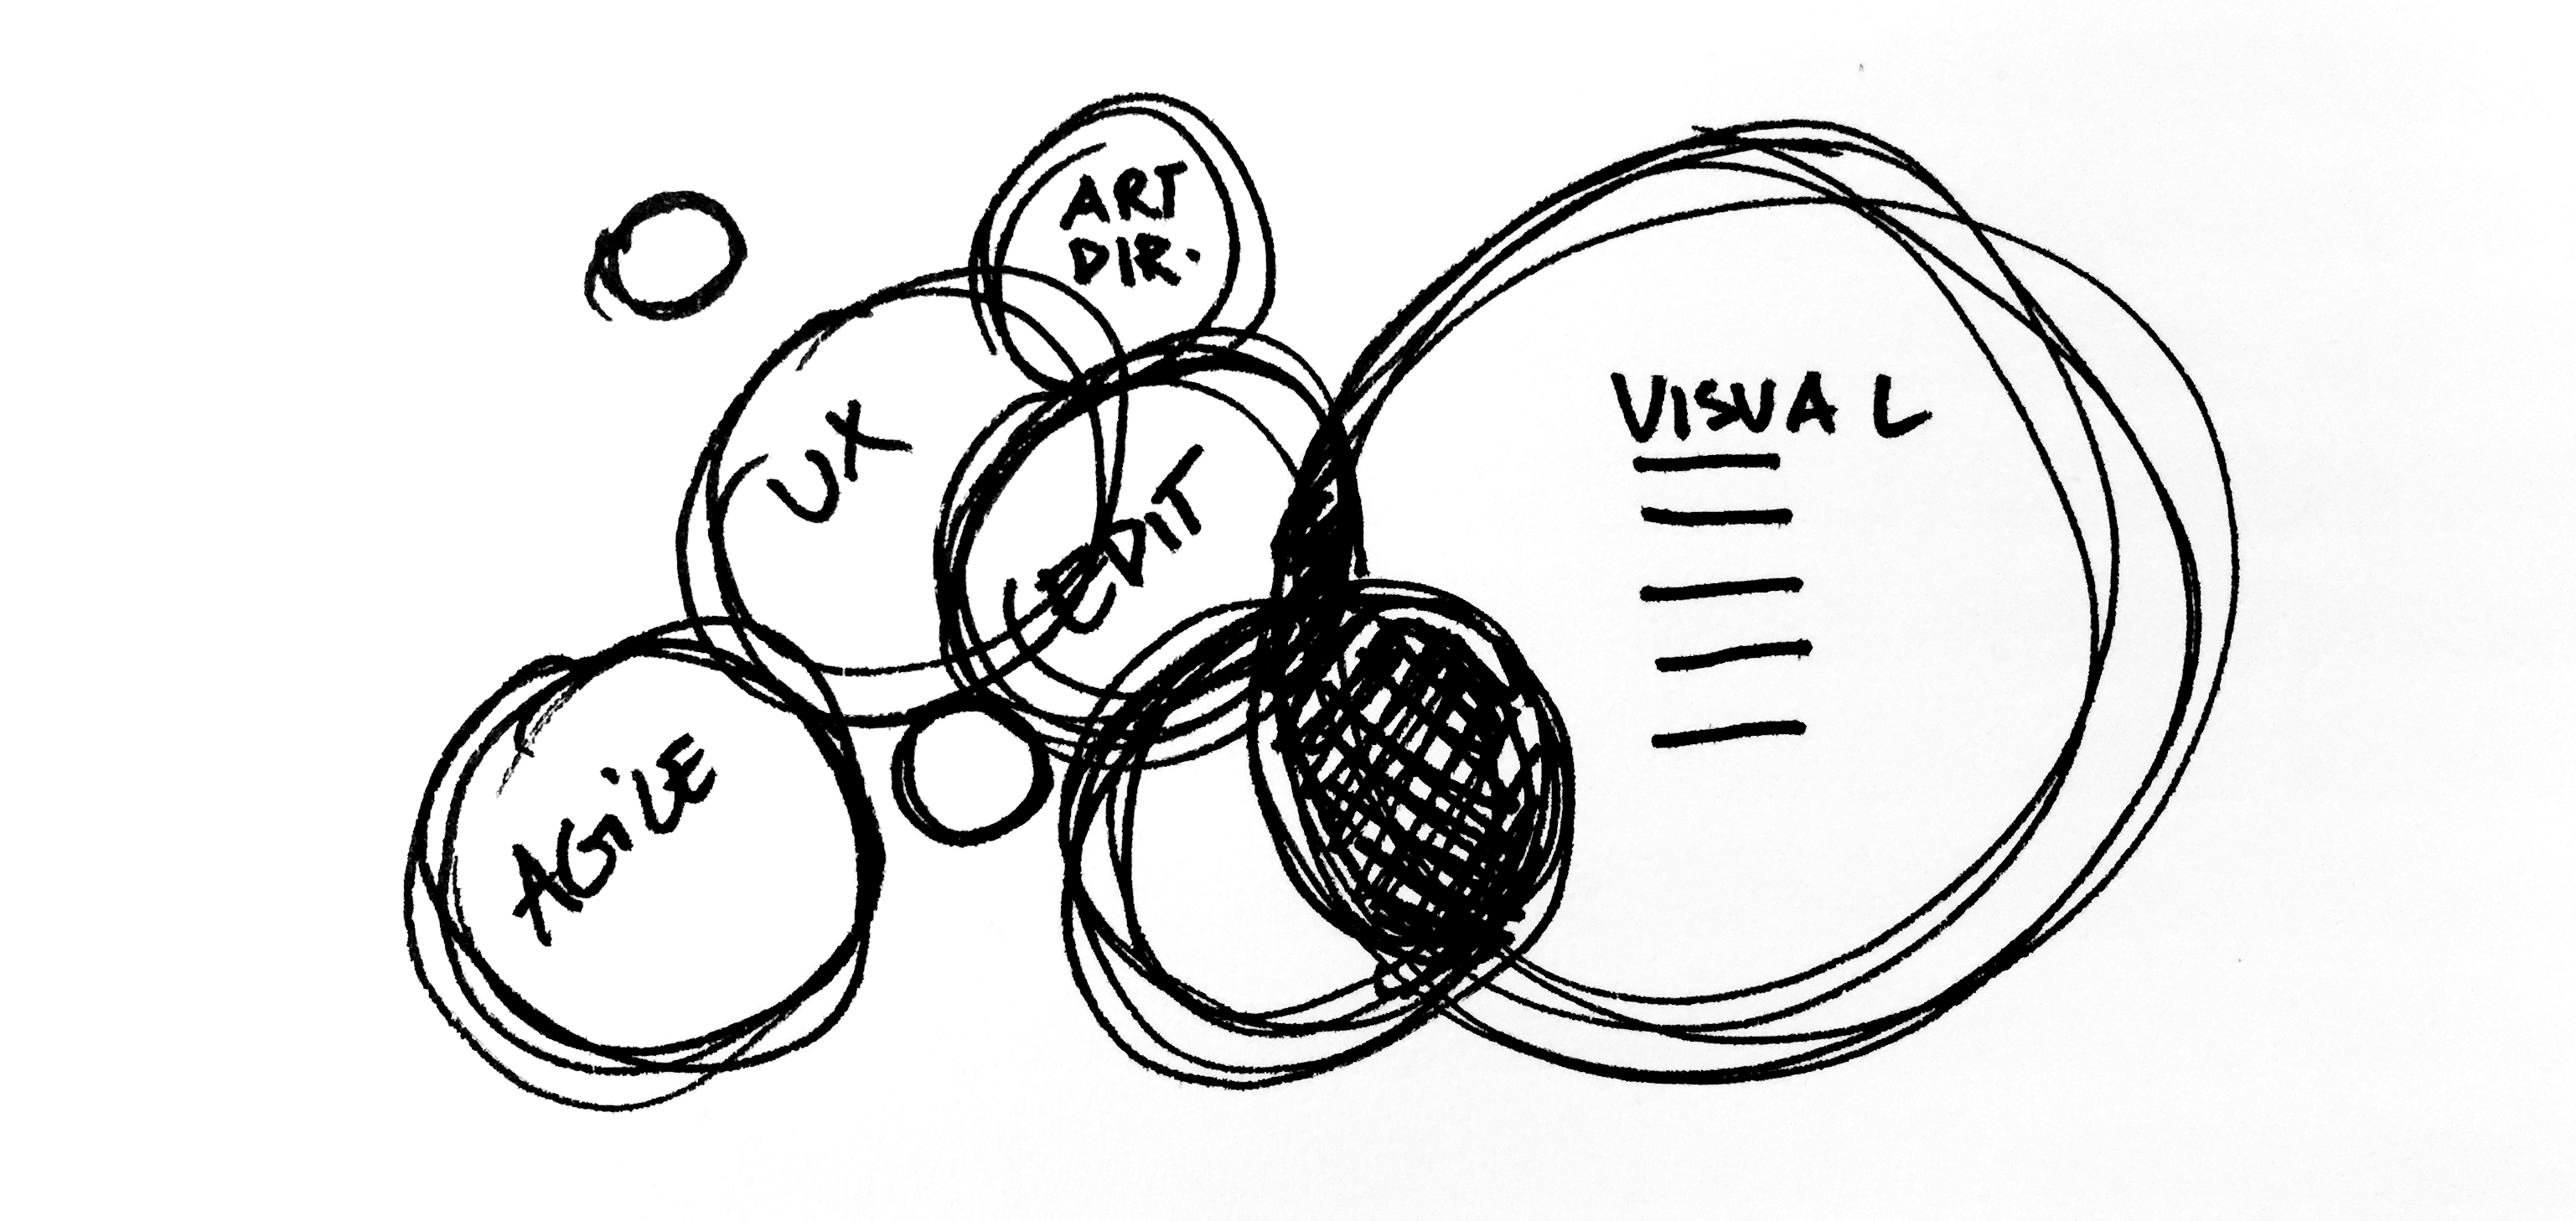 ART
DIR.
UX
EDIT
VISUAL
AGILE